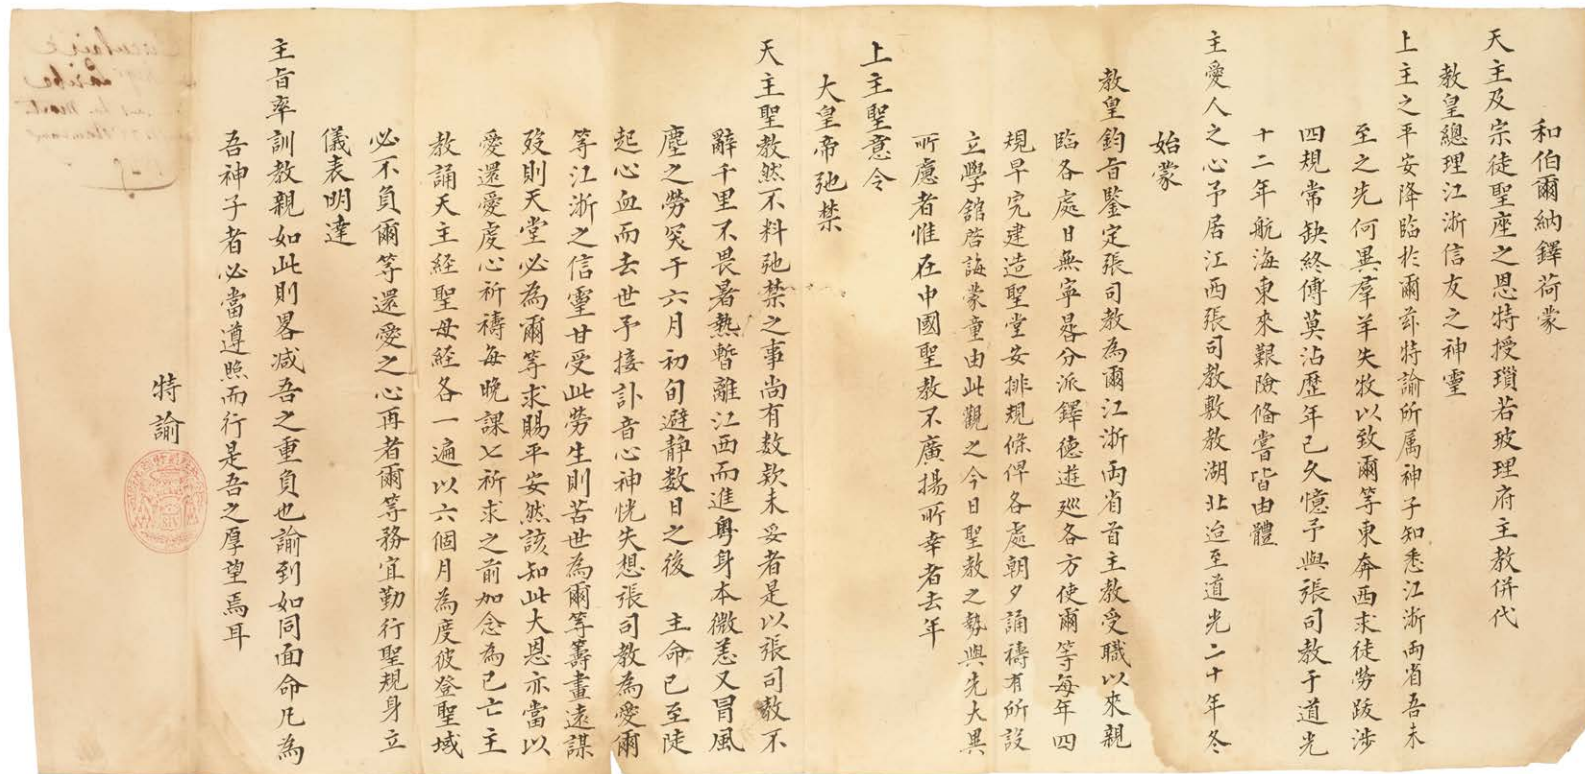 和伯爾納鐸荷蒙
天主及宗徒聖座之恩特授瑣若玻理府主教併代
教皇總理江浙信友之神靈
上主之平安降臨於爾茲特諭所属神子知悉江浙両省吾未
至之先何異羣羊失牧以致爾等東奔西求徒劳跋涉
四規常缺終傅莫沾歷年已久憶予與張司教于道光
十二年航海東來艱險俻嘗皆由體
主愛人之心予居江西張司教敷教湖北迨至道光二十年冬
始蒙
教皇鈞旨鑒定張司教為爾江浙両省首主教受職以來親
臨各處日無寧晷分派鐸德遊廵各方使爾等每年四
規早完建造聖堂安排規條俾各處朝夕誦禱有所設
立學舘啓誨蒙童由此觀之今日聖教之勢與先大異
所慮者惟在中國聖教不廣揚所幸者去年
上主聖意令
大皇帝弛禁
天主聖教然不料弛禁之事尚有数欵未妥者是以張司教不
辭千里不畏暑熱暫離江西而進粤身本微恙又冒風
塵之勞突于六月初旬避静数日之後 主命已至陡
起心血而去世予接訃音心神恍失想張司教為愛爾
等江浙之信靈甘受此劳生則苦世為爾等籌畫遠謀
歿則天堂必為爾等求賜平安然該知此大恩亦當以
愛還愛虔心祈禱每晚課七祈求之前加念為已亡主
教誦天主経聖母経各一遍以六個月為度彼登聖域
必不負爾等還愛之心再者爾等務宜勤行聖規身立
儀表明達
主旨率訓教親如此則畧减吾之重負也諭到如同面命凡為
吾神子者必當遵照而行是吾之厚望焉耳
特諭